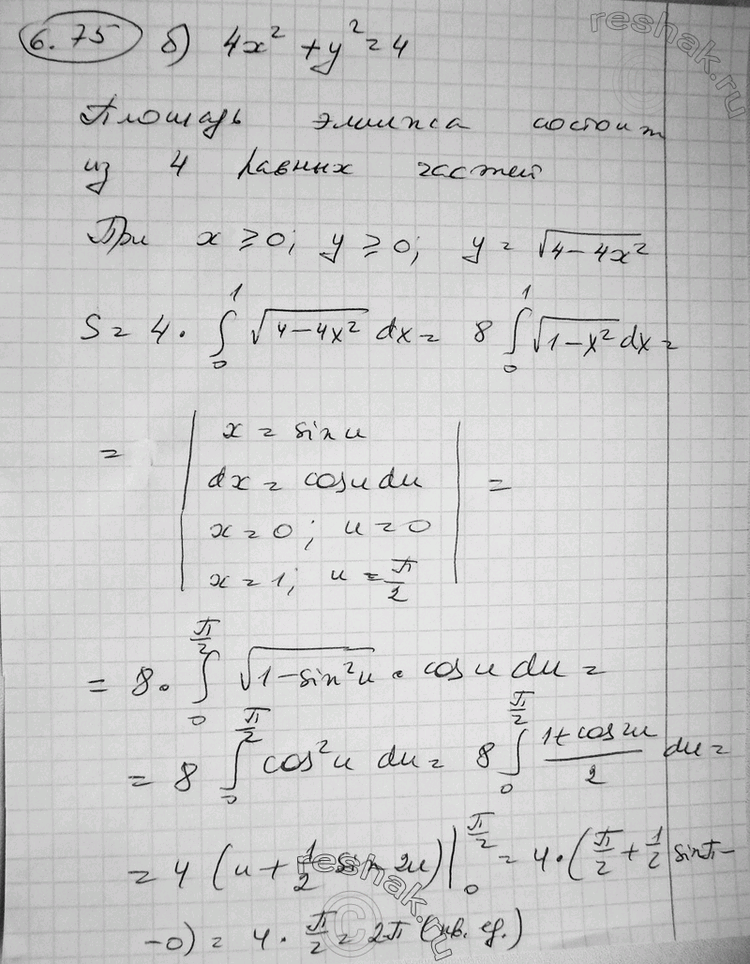 6.75 б) 4x² + y² = 4
Площадь эллипса состоит
из 4 равных частей
При x ≥ 0; y ≥ 0; y = √(4-4x²)
S = 4 · ∫₀¹ √(4-4x²) dx = 8 ∫₀¹ √(1-x²) dx =
= | x = sin u
dx = cos u du | =
x = 0; u = 0
x = 1; u = π/2
= 8 · ∫₀^(π/2) √(1-sin²u) · cos u du =
= 8 ∫₀^(π/2) cos²u du = 8 ∫₀^(π/2) (1+cos2u)/2 du =
= 4 (u + 1/2 sin 2u) |₀^(π/2) = 4 · (π/2 + 1/2 sin π -
- 0) = 4 · π/2 = 2π (кв. ед.)
reshak.ru
reshak.ru